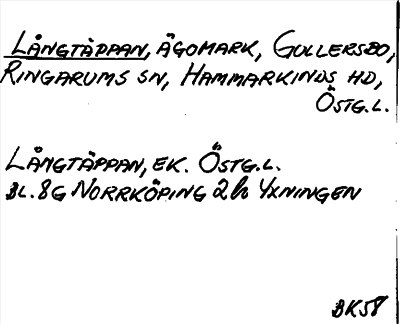 LÅNGTÄPPAN, ÄGOMARK, GULLERSBO,
RINGARUMS SN, HAMMARKINDS HD,
ÖSTG.L.
LÅNGTÄPPAN, EK. ÖSTG.L.
BL. 8G NORRKÖPING 2h YXNINGEN
BK58